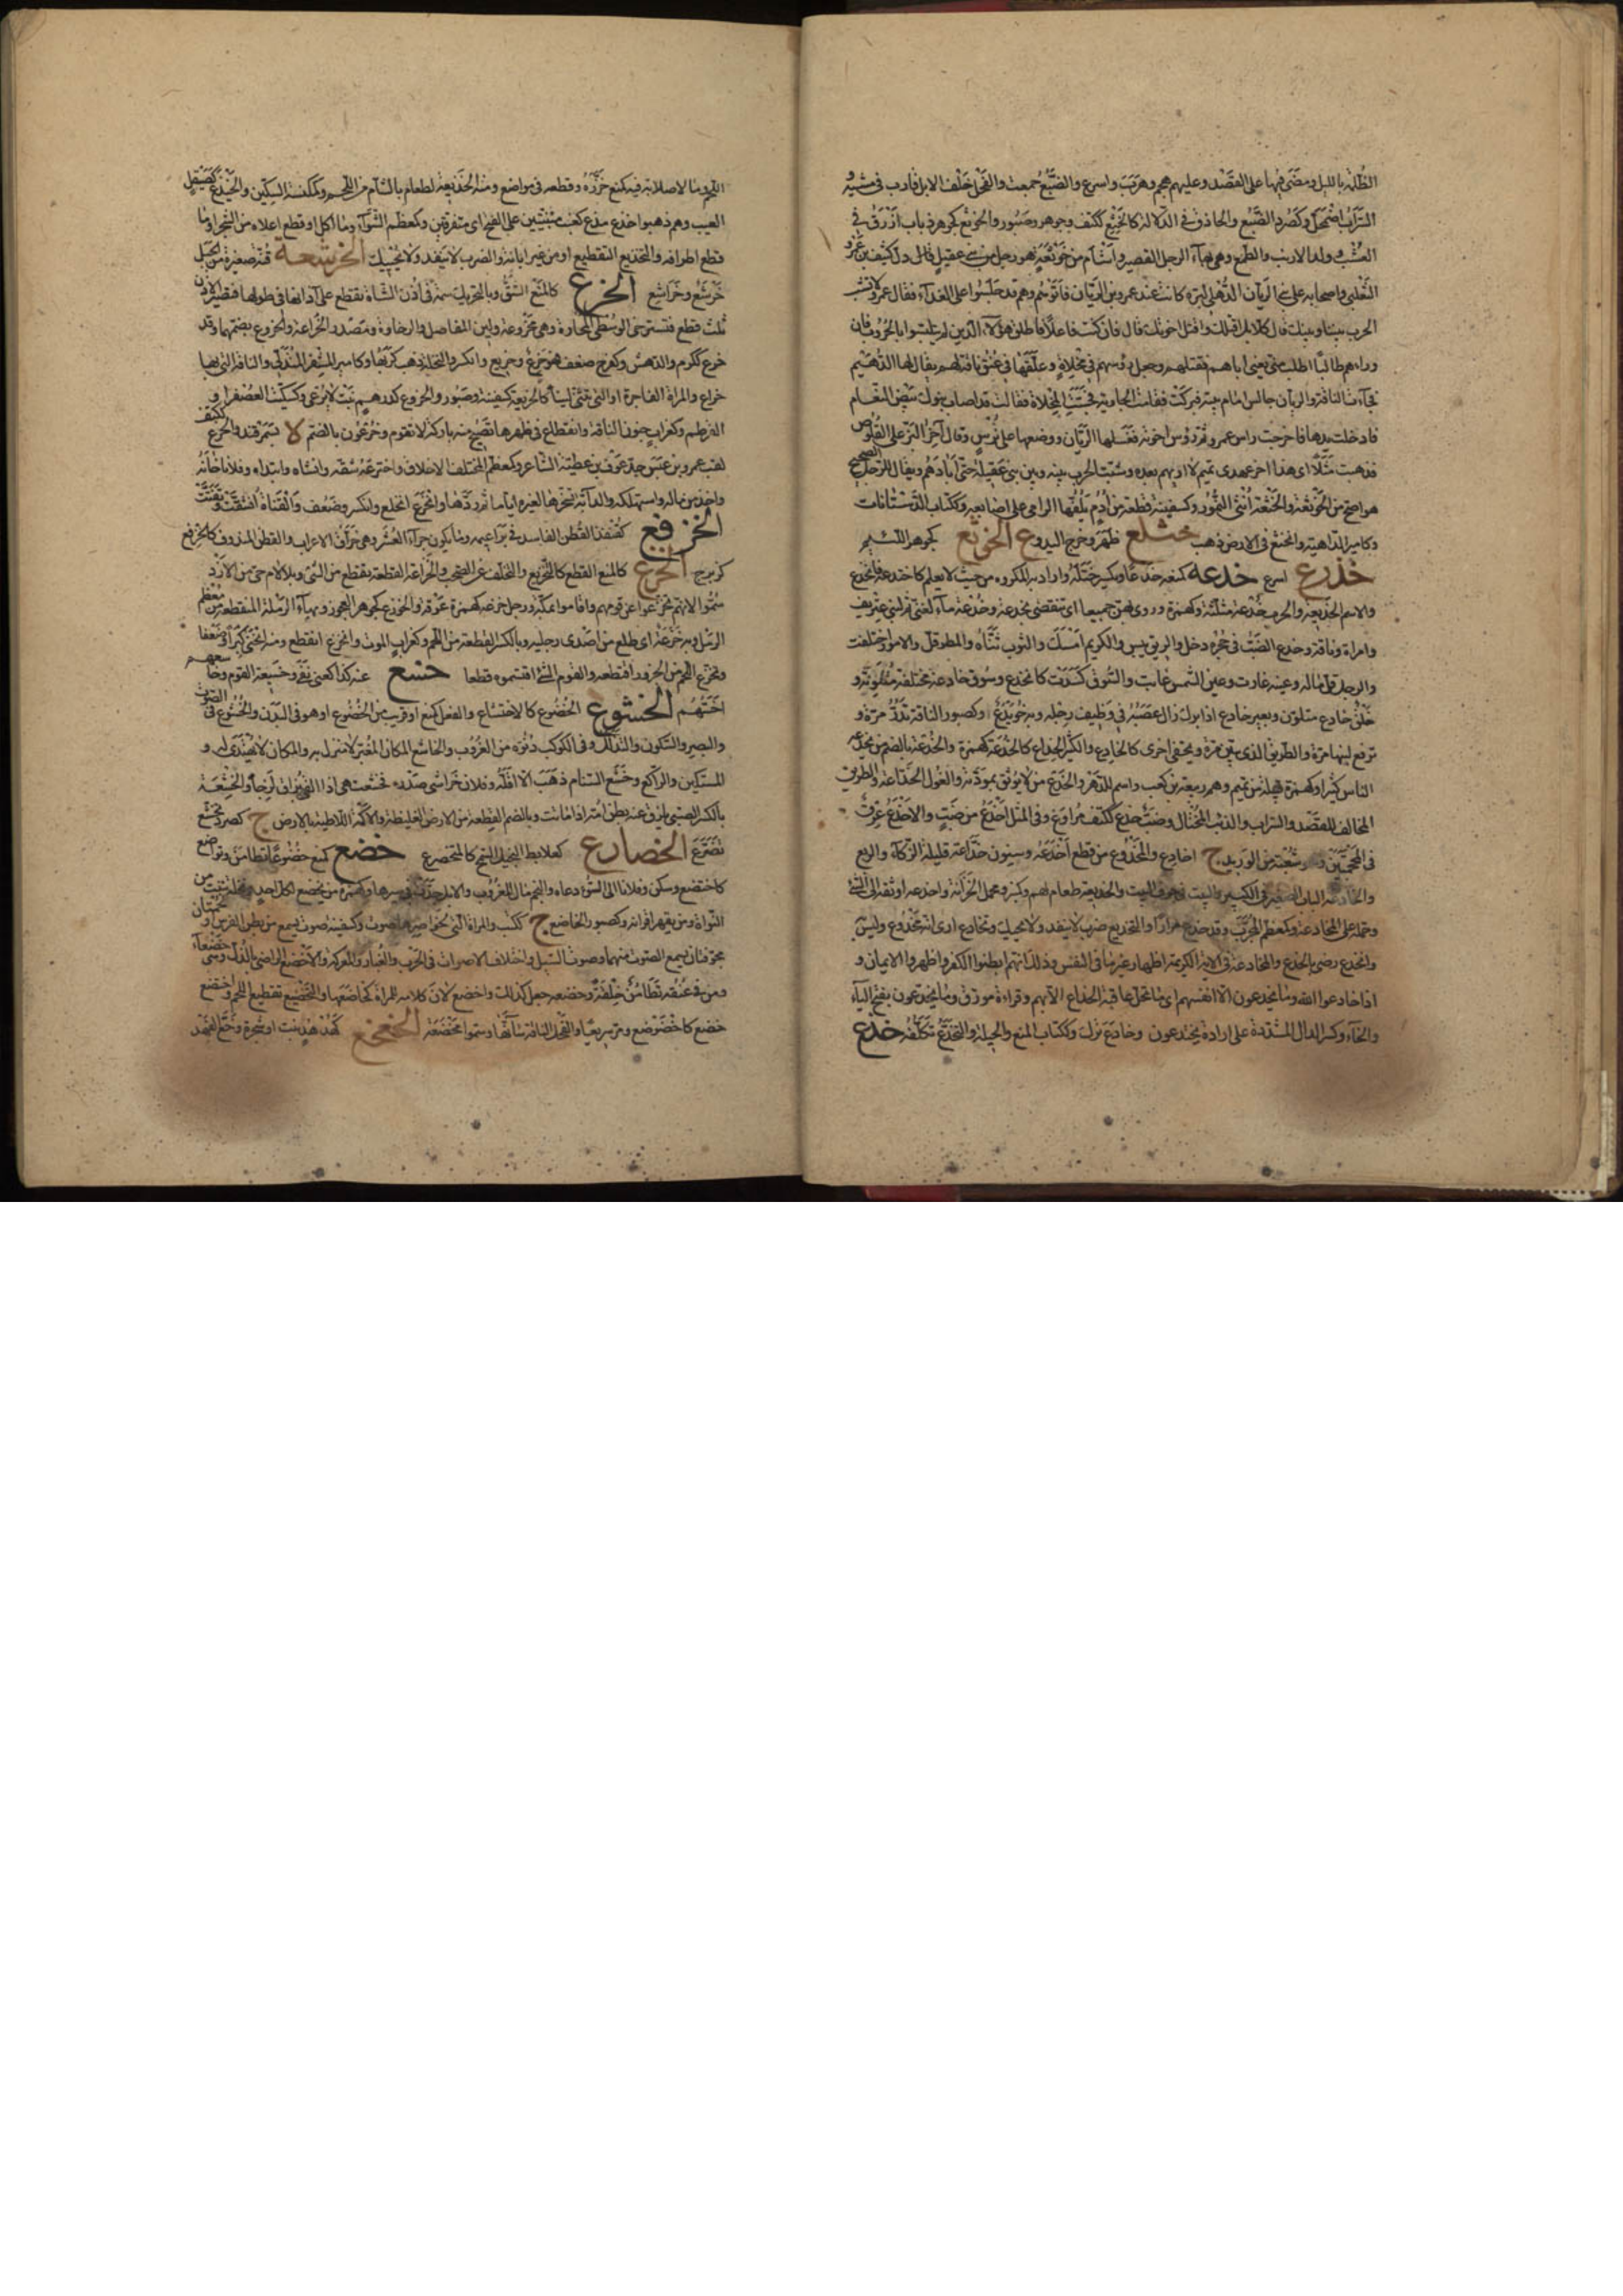 الظلمة بالليل ومضى فيها على القصد وعليهم هجم وهرب واسرع والضبع خمعت والفحل خلف الابل قارب في مشيه و
السراب اضمحل وكصرد الضبع والحاذق في الدلالة كالخيتع ككتف وجوهر وصبور والخوتع كجوهر ذباب ازرق في
العشب وولد الارنب والطمع وهي بهاء الرجل القصير واشأم من خوتعة هو رجل من بني عقيلة دل كثيف بن عمرو
التغلبي واصحابه على بني الزبان الذهلي لترة كانت عند عمرو بن الزبان فاتوهم وهم قد جلسوا على الغداء فقال عمرو لا تشب
الحرب بيننا وبينك قال كلا بل اقتلك واقتل اخوتك قال فان كنت فاعلا فاطلق هؤلاء الذين لم يتلبسوا بالحروب فان
وراءهم طالبا اطلب مني يعني اباهم فقتلهم وجعل رؤسهم في مخلاة وعلقها في عنق ناقة لهم يقال لها الدهيم
فجاءت الناقة والزبان جالس امام بيته فبركت فقامت الجارية فجست المخلاة فقالت قد اصاب بنوك بيض النعام
فادخلت يدها فاخرجت راس عمرو ثم رؤس اخوته فغسلها الزبان ووضعها على ترس وقال آخر البز على القلوص
فذهبت مثلا اي هذا آخر عهدي بهم لا اراهم بعده وشبت الحرب بينه وبين بني عقيلة حتى ابادهم ويقال للرجل الصحيح
هو اصح من الخوتعة والختعة انثى النمور وكسفينة قطعة من ادم يلفها الرامي على اصابعه وككتاب الدستبانات
وكامير الداهية وانختع في الارض ذهب ختلع ظهر وخرج الى البدو الخوثع كجوهر اللئيم
خذرع اسرع خدعه كمنعه خدعا ويكسر ختله واراد به المكروه من حيث لا يعلم كاختدعه فانخدع
والاسم الخديعة والحرب خدعة مثلثة وكهمزة وروي بهن جميعا اي تنقضي بخدعة وخدعة ماءة لغني ثم لبني عتريف
وامراة وناقة وخدع الضب في جحره دخل والريق يبس والكريم امسك والثوب ثناه والمطر قل والامور اختلفت
والرجل قل ماله وعينه غارت وعين الشمس غابت والسوق كسدت كانخدع وسوق خادعة مختلفة متلونة و
خلق خادع متلون وبعير خادع اذا برك زال عصبه في وظيف رجله وبه خويدع وكصبور الناقة تدر مرة و
ترفع لبنها مرة والطريق الذي يبين مرة ويخفى اخرى كالخادع والكثير الخداع كالخدعة كهمزة والخدعة بالضم من يخدعه
الناس كثيرا وكهمزة قبيلة من تميم وهم ربيعة بن كعب واسم للدهر والخدع من لا يوثق بمودته والغول الخداعة والطريق
المخالف للقصد والسراب والذئب المحتال وضب خدع ككتف مراوغ وفي المثل اخدع من ضب والاخدع عرق
في المحجمتين وهو شعبة من الوريد ج اخادع والمخدوع من قطع اخدعه وسنون خداعة قليلة الزكاء والريع
والخادعة الباب الصغير في الكبير والبيت في جوف البيت والخديعة طعام لهم وكمنبر ومحكم الخزانة واخدعه اوثقه الى الشيء
وحمله على المخادعة وكمعظم المجرب وقد خدع مرارا والتخديع ضرب لا ينفذ ولا يحيك وتخادع ارى انه مخدوع وليس
وانخدع رضي بالخدع والمخادعة في الاية الكريمة اظهار غير ما في النفس وذلك انهم ابطنوا الكفر واظهروا الايمان و
اذا خادعوا الله وما يخدعون الا انفسهم اي ما تحل عاقبة الخداع الا بهم وقراءة مورق وما يخدعون بفتح الياء
والخاء وكسر الدال المشددة على ارادة يختدعون وخادع ترك وككتاب المنع والحيلة والتخدع تكلفه خذع
اللحم وما لا صلابة فيه كمنع حززه وقطعه في مواضع ومنه الخذيعة لطعام بالشام من اللحم وكمكنسة السكين والخيذع كصيقل
العيب وهم ذهبوا خذع مذع كعنب متبيتين على الفتح اي متفرقين وكمعظم الشواء وما اكل او قطع اعلاه من الشجر او ما
قطع اطرافه والتخذيع التقطيع او من غير ابانة والضرب لا ينفذ ولا يحيك الخرشعة قنة صغيرة من الجبل
خرشع وخراشع الخرع كالمنع الشق وبالتحريك سمة في اذن الشاة تقطع على آذانها في طولها فتصير الاذن
ثلث قطع فتسترخي الوسطى على المحارة وهي مخروعة ولين المفاصل والرخاوة ومصدره الخراعة والخروع بضمهما وقد
خرع ككرم والدهش وكفرح ضعف فهو خرع وخريع وانكسر والنخلة ذهب كربها وكامير المشفر المتدلي والناقة التي بها
خراع والمراة الفاجرة او التي تتثنى لينا كالخريعة كسفينة وصبور والخروع كدرهم نبت لا يرعى وكسكيت العصفر او
القرطم وكغراب جنون الناقة وانقطاع في ظهرها تصبح منه باركة لا تقوم وخرعون بالضم لا بسمرقند والخرع ككتف
لقب عمرو بن عبس جد عوف بن عطية الشاعر وكمعظم المختلف الاخلاق واخترعه شقه وانشاه وابتداه وفلانا خانه
واخذ من ماله واستهلكه والدابة تخرها لغيره اياما ثم ردها وانخرع انخلع وانكسر وضعف والقناة انشقت وتفتتت
الخرفع كقنفذ القطن الفاسد في براعيمه وما يكون جراء العشر وهي حراق الاعراب والقطن المندوف كالخرفع
كزبرج الخزع كالمنع القطع كالتخزيع والتخلف عن الصحب والخزاعة القطعة تقطع من الشيء وبلا لام حي من الازد
سموا لانهم تخزعوا عن قومهم واقاموا بمكة ورجل خزعة كهمزة عوقة والخوزع كجوهر العجوز وبهاء الرملة المنقطعة من معظم
الرمل وبه خزعة اي ظلع من احدى رجليه وبالكسر القطعة من اللحم وكغراب الموت وانخزع انقطع ومتنه انحنى كبرا وضعفا
وتخزع اللحم من الجزور اقتطعه والقوم الشيء اقتسموه قطعا خسع عنه كذا كعني نفي وخسيعة القوم وخاسعهم
اخسهم الخشوع الخضوع كالاختشاع والفعل كمنع او قريب من الخضوع او هو في البدن والخشوع في الصوت
والبصر والسكون والتذلل وفي الكوكب دنوه من الغروب والخاشع المكان المغبر لا منزل به والمكان لا يهتدى له و
المستكين والراكع وخشع السنام ذهب الا اقله وفلان خراشي صدره فخشعت هي اذا القى بزاقا لزجا والخشعة
بالكسر الصبي يلزق عنه بطن امه اذا ماتت وبالضم القطعة من الارض الغليظة والاكمة اللاطية بالارض ج كصرد تخشع
تضرع الخضارع كعلابط البخيل المتسمح كالمتخضرع خضع كمنع خضوعا تطامن وتواضع
كاختضع وسكن وفلانا الى السوء دعاه والنجم مال للغروب والابل جدت في سيرها وكهمزة من يخضع لكل احد ونخلة تنبت من
النواة ومن يقهر اقرانه وكصبور الخاضع ج ككتب والمراة التي لخواصرها صوت وكسفينة صوت يسمع من بطن الفرس او
مجوفتان يسمع الصوت منهما وصوت السيل واختلاف الاصوات في الحرب والغبار والمعركة والاخضع الراضي بالذل وهي خضعاء
ومن في عنقه تطامن خلقة وخضعه جعل كذلك واخضع لان كلامه للمراة كخاضعها والتخضيع تقطيع اللحم واخضع
خضع كاخضوضع ومر سريعا والفحل الناقة سانها وسموا مخضعة الخعخع كهدهد نبت او شجرة وخع الفهد